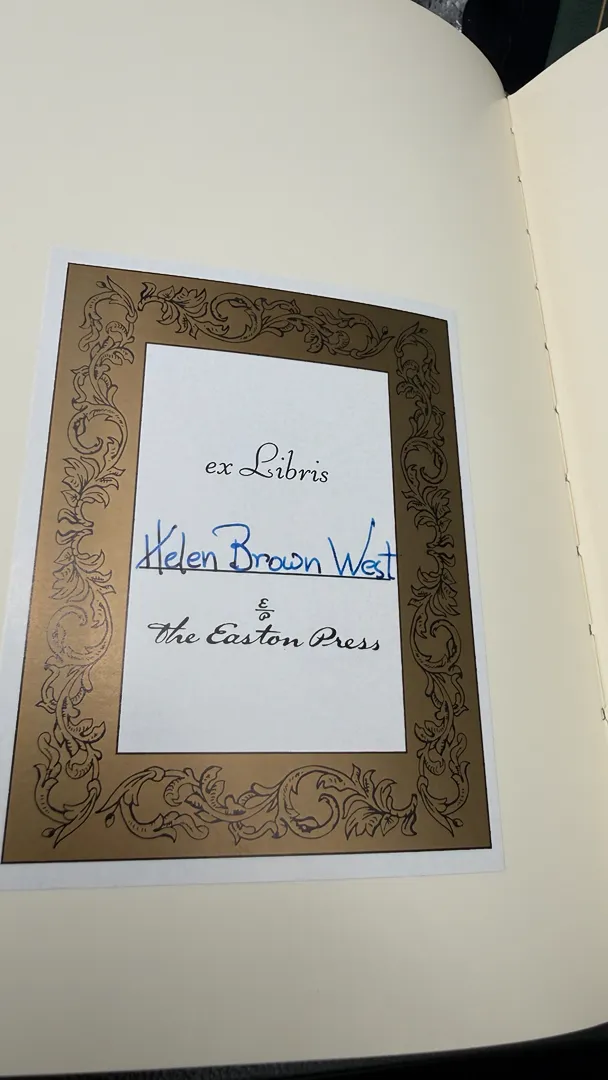 ex Libris
Helen Brown West
E
P
the Easton Press